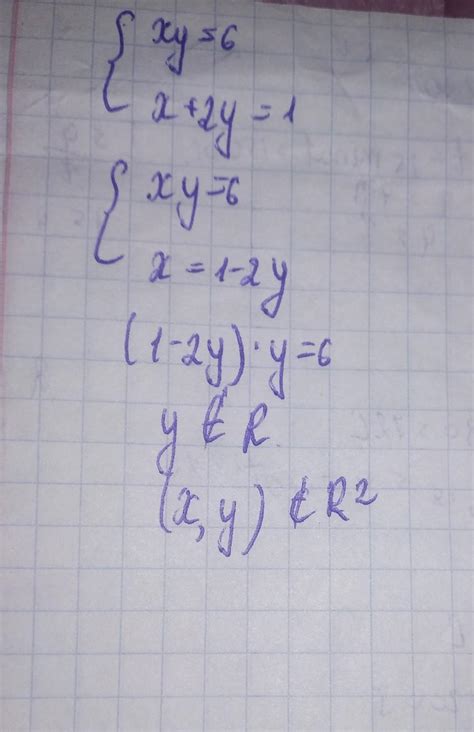 { xy = 6
x + 2y = 1
{ xy = 6
x = 1 - 2y
(1 - 2y) · y = 6
y ∉ R
(x, y) ∉ R²